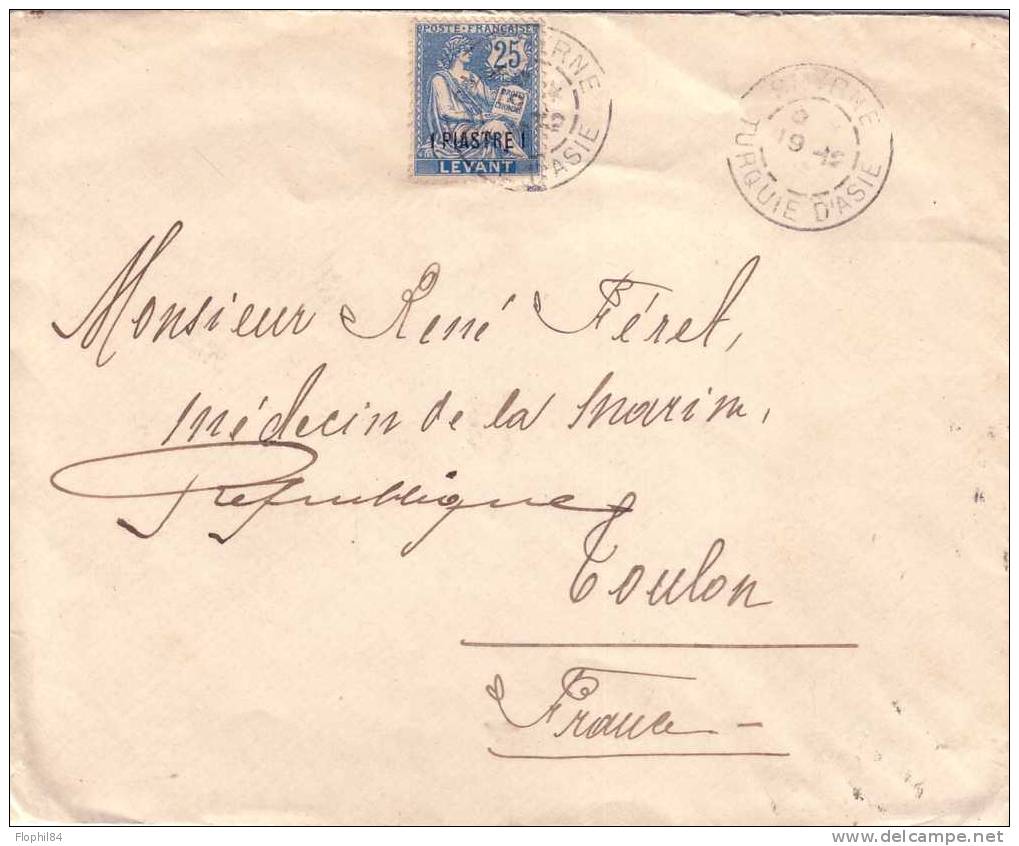 POSTE FRANÇAISE
25
1 PIASTRE 1
LEVANT
SMYRNE
19 - 12
TURQUIE D'ASIE
Monsieur René Féret,
médecin de la marin,
République
Toulon
France -
Flophil84
www.delcampe.net